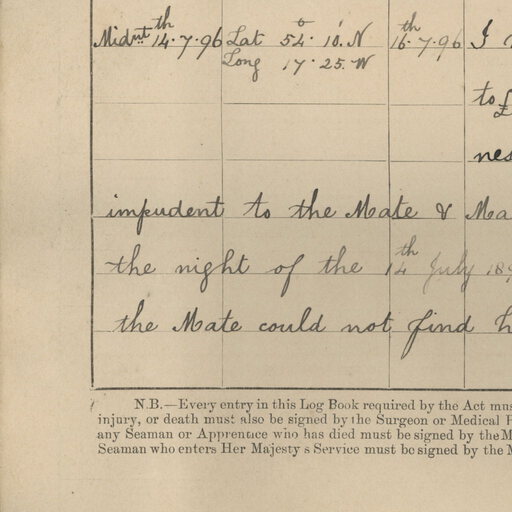 Midnt 14th.7.96 Lat 54° 10' N 16th.7.96 I
Long 17.25.W
to £
nes
impudent to the Mate & Ma
the night of the 14th July 189
the Mate could not find h
N.B.—Every entry in this Log Book required by the Act mus
injury, or death must also be signed by the Surgeon or Medical P
any Seaman or Apprentice who has died must be signed by the M
Seaman who enters Her Majesty s Service must be signed by the M